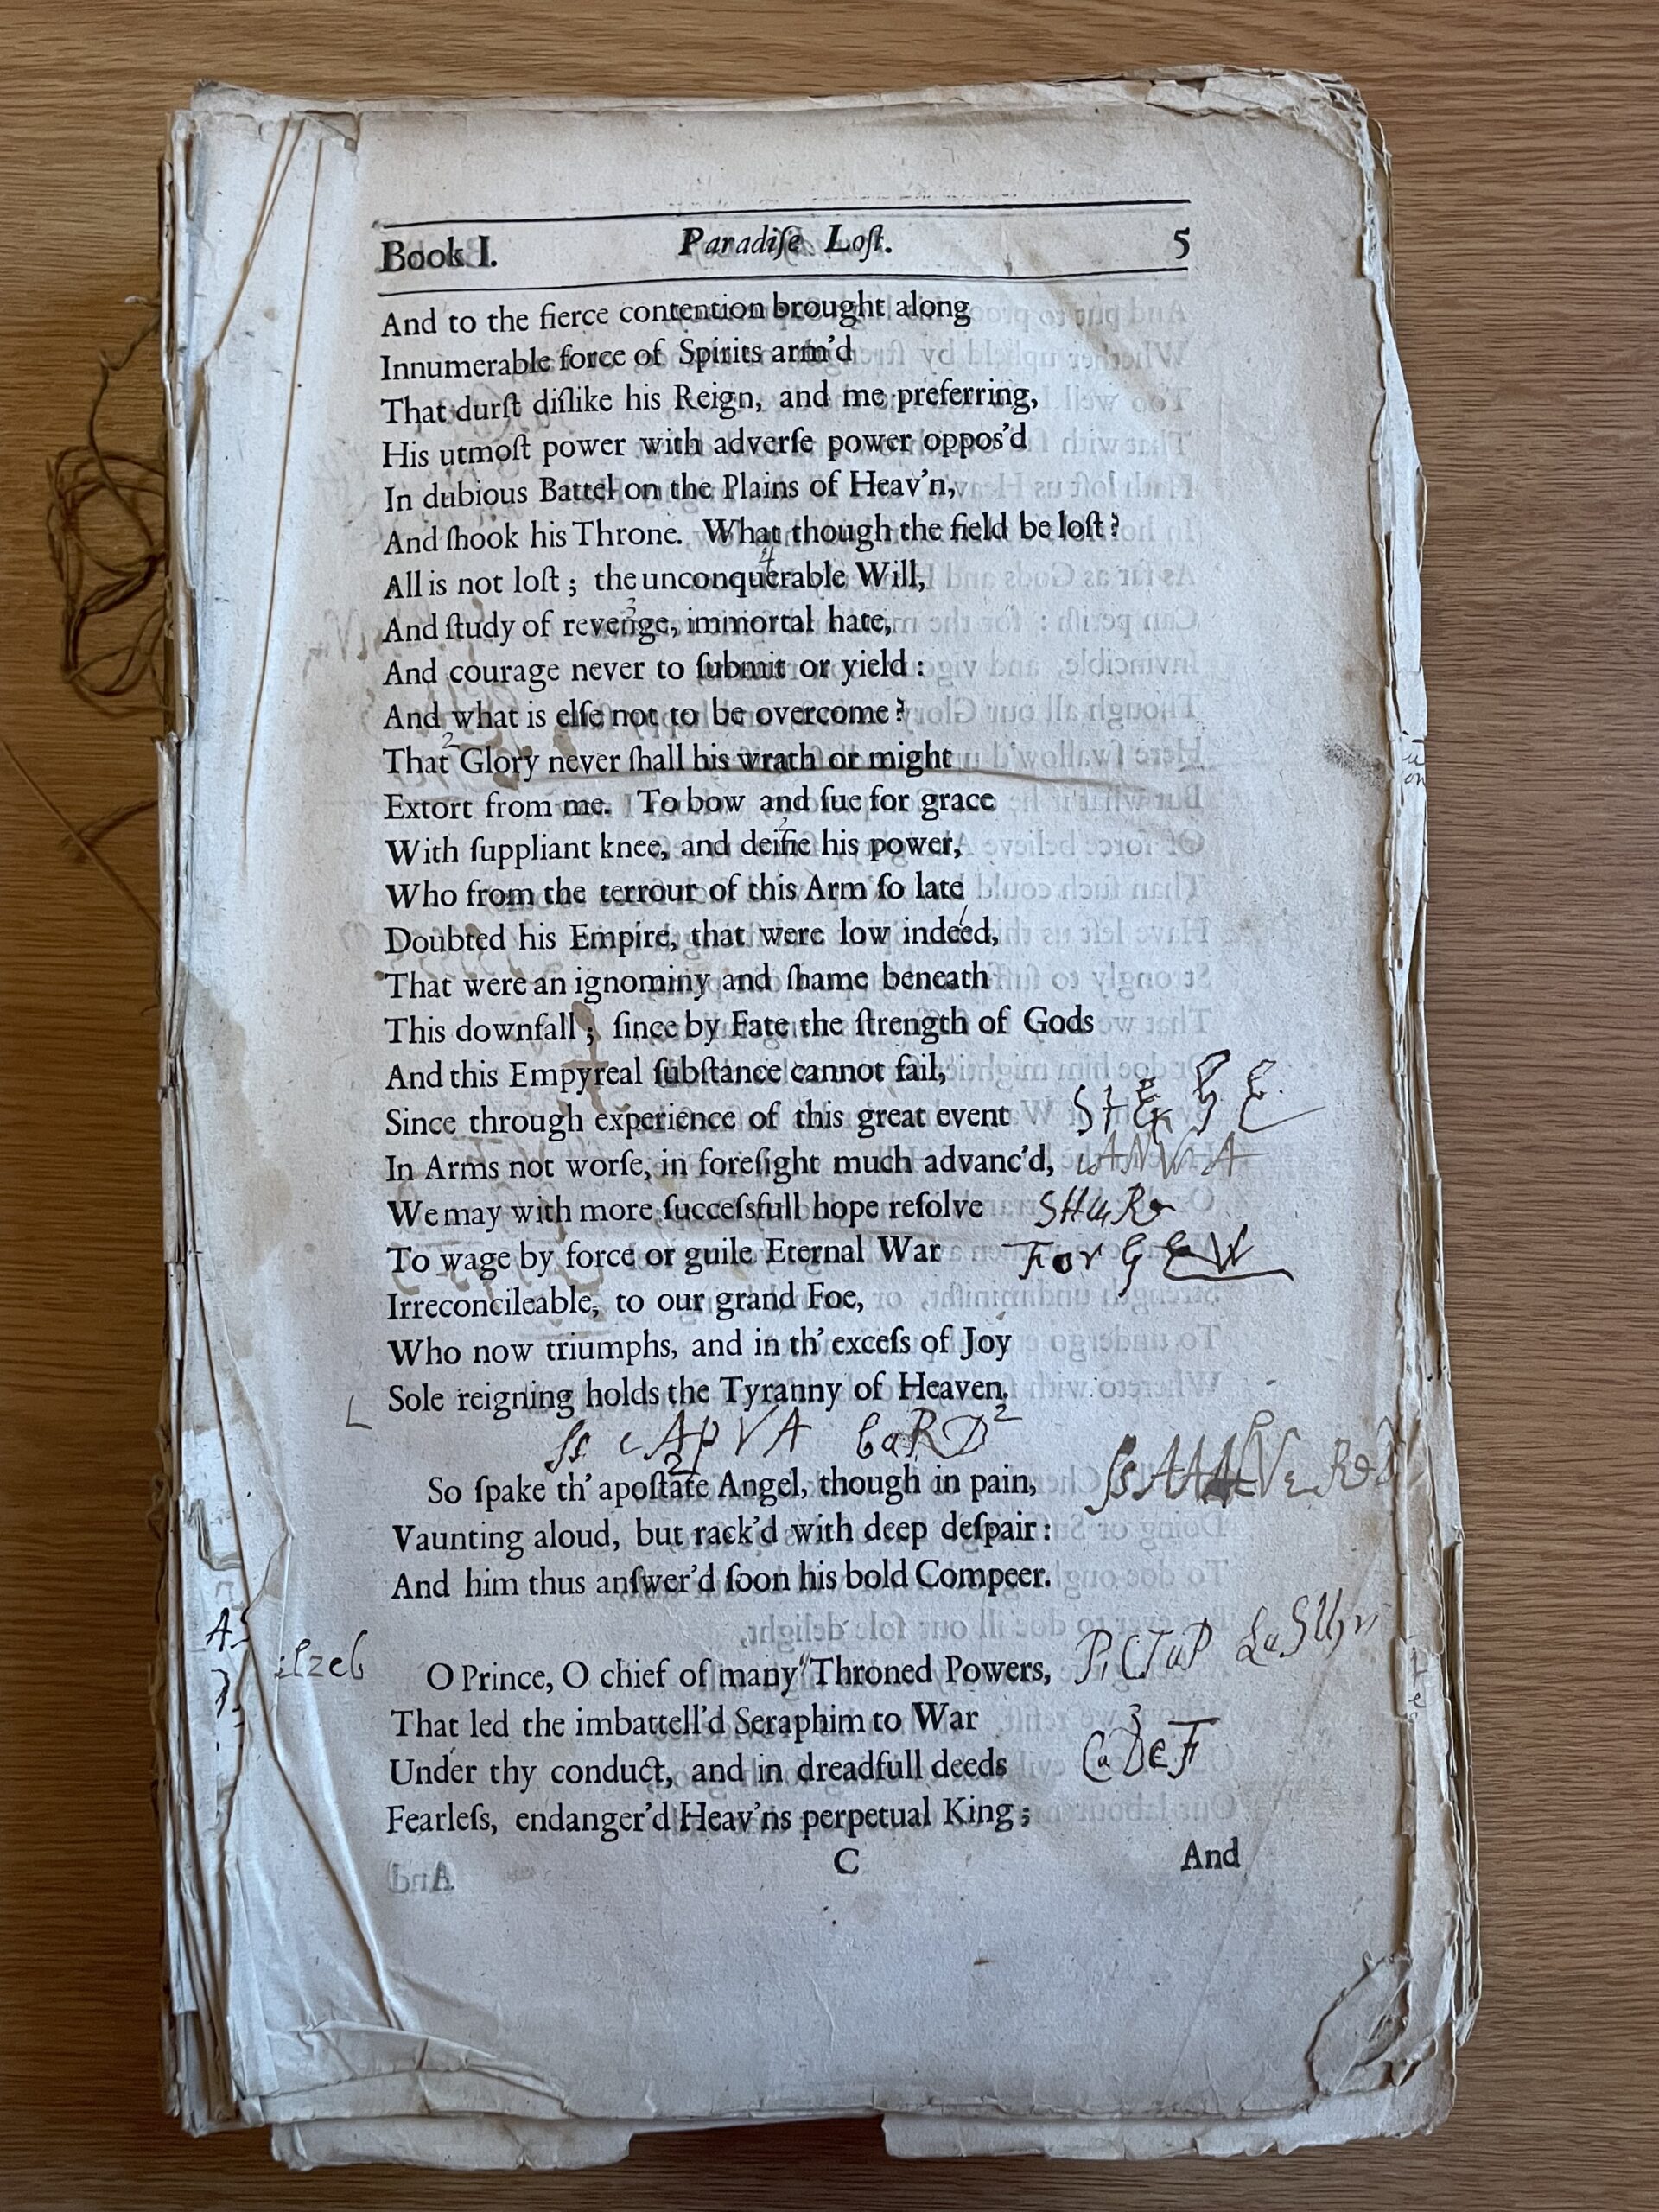 Book I. Paradiſe Loſt. 5
And to the fierce contention brought along
Innumerable force of Spirits arm'd
That durſt diſlike his Reign, and me preferring,
His utmoſt power with adverſe power oppos'd
In dubious Battel on the Plains of Heav'n,
And ſhook his Throne. What though the field be loſt?
All is not loſt; the unconquerable Will,
And ſtudy of revenge, immortal hate,
And courage never to ſubmit or yield:
And what is elſe not to be overcome?
That Glory never ſhall his wrath or might
Extort from me. To bow and ſue for grace
With ſuppliant knee, and deifie his power,
Who from the terrour of this Arm ſo late
Doubted his Empire, that were low indeed,
That were an ignominy and ſhame beneath
This downfall; ſince by Fate the ſtrength of Gods
And this Empyreal ſubſtance cannot fail,
Since through experience of this great event
In Arms not worſe, in foreſight much advanc'd,
We may with more ſucceſsfull hope reſolve
To wage by force or guile Eternal War
Irreconcileable, to our grand Foe,
Who now triumphs, and in th' exceſs of Joy
Sole reigning holds the Tyranny of Heaven.
So ſpake th' apoſtate Angel, though in pain,
Vaunting aloud, but rack'd with deep deſpair:
And him thus anſwer'd ſoon his bold Compeer.
O Prince, O chief of many Throned Powers,
That led the imbattell'd Seraphim to War
Under thy conduct, and in dreadfull deeds
Fearleſs, endanger'd Heav'ns perpetual King;
C And